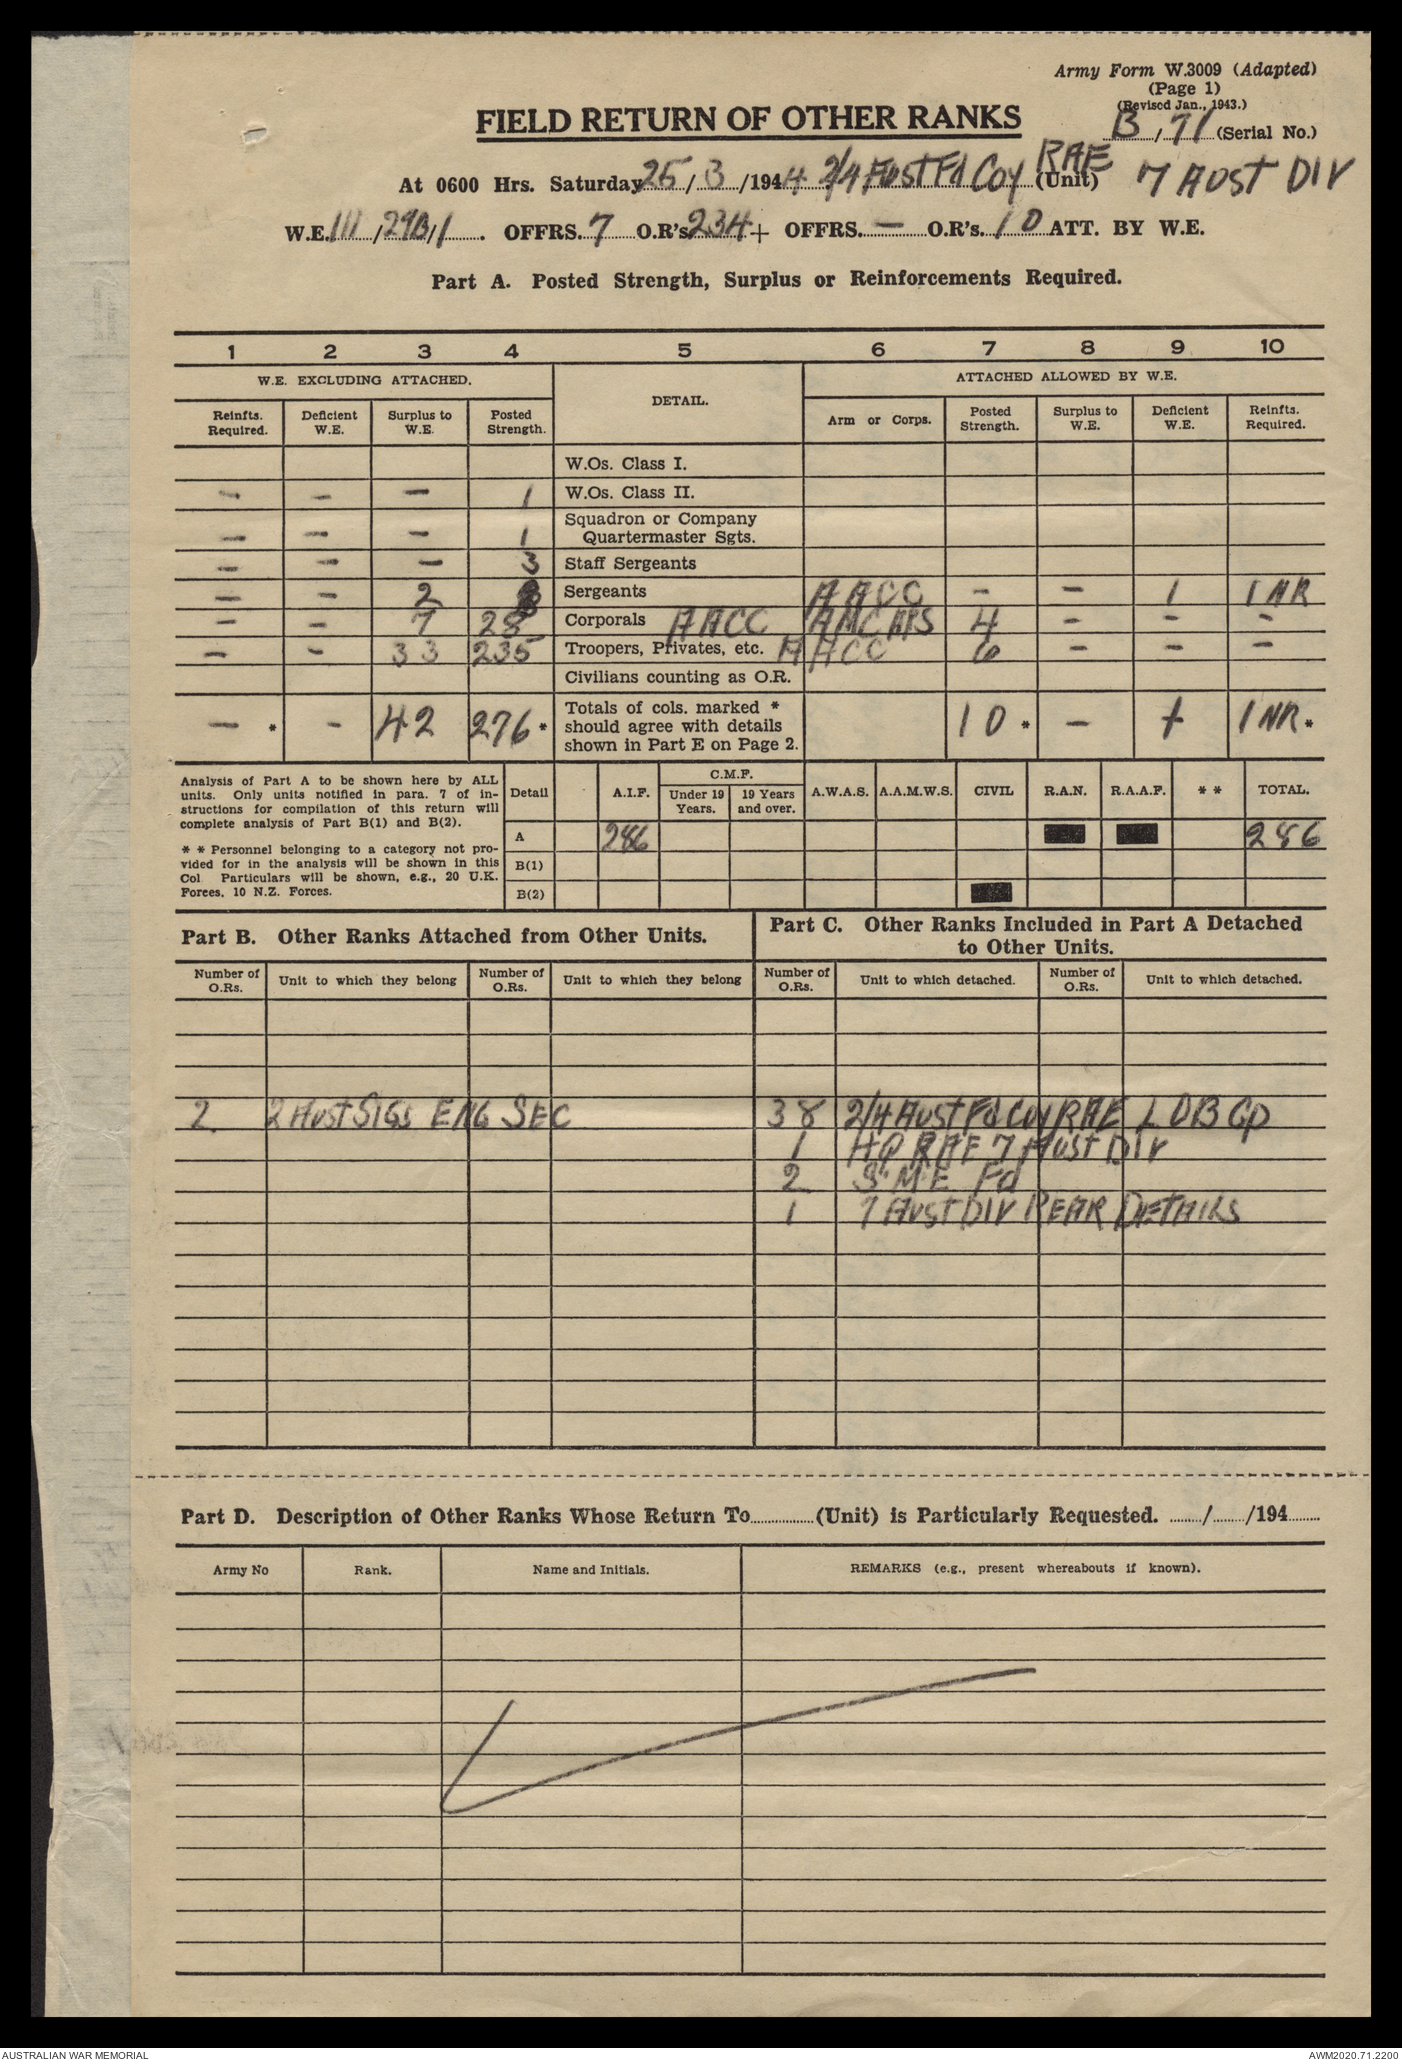 Army Form W.3009 (Adapted)
(Page 1)
(Revised Jan., 1943.)
FIELD RETURN OF OTHER RANKS
B / 71 (Serial No.)
At 0600 Hrs. Saturday 25 / 3 /1944 2/4 Aust Fd Coy RAE (Unit) 7 Aust DIV
W.E. III /29B/1 . OFFRS. 7 O.R's 234 + OFFRS. — O.R's. 10 ATT. BY W.E.
Part A. Posted Strength, Surplus or Reinforcements Required.
1 2 3 4 5 6 7 8 9 10
W.E. EXCLUDING ATTACHED. DETAIL. ATTACHED ALLOWED BY W.E.
Reinfts. Required. Deficient W.E. Surplus to W.E. Posted Strength. Arm or Corps. Posted Strength. Surplus to W.E. Deficient W.E. Reinfts. Required.
W.Os. Class I.
— — — 1 W.Os. Class II.
— — — 1 Squadron or Company Quartermaster Sgts.
— — — 3 Staff Sergeants
— — 2 8 Sergeants AACC — — 1 1 NR
— — 7 28 Corporals AACC 4 — — —
— — 33 235 Troopers, Privates, etc. AACC 6 — — —
Civilians counting as O.R.
— * — 42 276 * Totals of cols. marked * should agree with details shown in Part E on Page 2. 10 * — 1 1 NR *
Analysis of Part A to be shown here by ALL
units. Only units notified in para. 7 of in-
structions for compilation of this return will
complete analysis of Part B(1) and B(2).
* * Personnel belonging to a category not pro-
vided for in the analysis will be shown in this
Col Particulars will be shown, e.g., 20 U.K.
Forces, 10 N.Z. Forces.
Detail A.I.F. C.M.F. Under 19 Years. 19 Years and over. A.W.A.S. A.A.M.W.S. CIVIL R.A.N. R.A.A.F. * * TOTAL.
A 286 286
B(1)
B(2)
Part B. Other Ranks Attached from Other Units.
Part C. Other Ranks Included in Part A Detached
to Other Units.
Number of O.Rs. Unit to which they belong Number of O.Rs. Unit to which they belong Number of O.Rs. Unit to which detached. Number of O.Rs. Unit to which detached.
2. 2 Aust SIGS ENG SEC 38 2/4 Aust Fd Coy RAE LOB Gp
1 HQ RAE 7 Aust DIV
2 S.M.E Fd
1 7 Aust DIV REAR DETAILS
Part D. Description of Other Ranks Whose Return To (Unit) is Particularly Requested. / /194
Army No Rank. Name and Initials. REMARKS (e.g., present whereabouts if known).
AUSTRALIAN WAR MEMORIAL AWM2020.71.2200